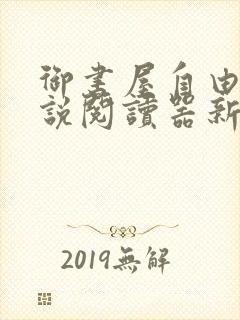 御書屋自由
說閱讀器新
2019無解